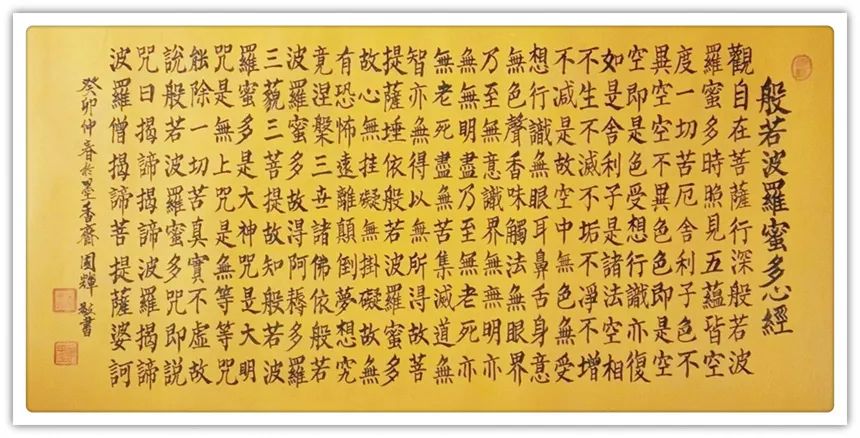 般若波羅蜜多心經
觀自在菩薩行深般若波
羅蜜多時照見五蘊皆空
度一切苦厄舍利子色不
異空空不異色色即是空
空即是色受想行識亦復
如是舍利子是諸法空相
不生不滅不垢不淨不增
不減是故空中無色無受
想行識無眼耳鼻舌身意
無色聲香味觸法無眼界
乃至無意識界無無明亦
無無明盡乃至無老死亦
無老死盡無苦集滅道無
智亦無得以無所得故菩
提薩埵依般若波羅蜜多
故心無挂礙無掛礙故無
有恐怖遠離顛倒夢想究
竟涅槃三世諸佛依般若
波羅蜜多故得阿耨多羅
三藐三菩提故知般若波
羅蜜多是大神咒是大明
咒是無上咒是無等等咒
能除一切苦真實不虛故
說般若波羅蜜多咒即說
咒曰揭諦揭諦波羅揭諦
波羅僧揭諦菩提薩婆訶
癸卯仲春於墨香齋國輝敬書